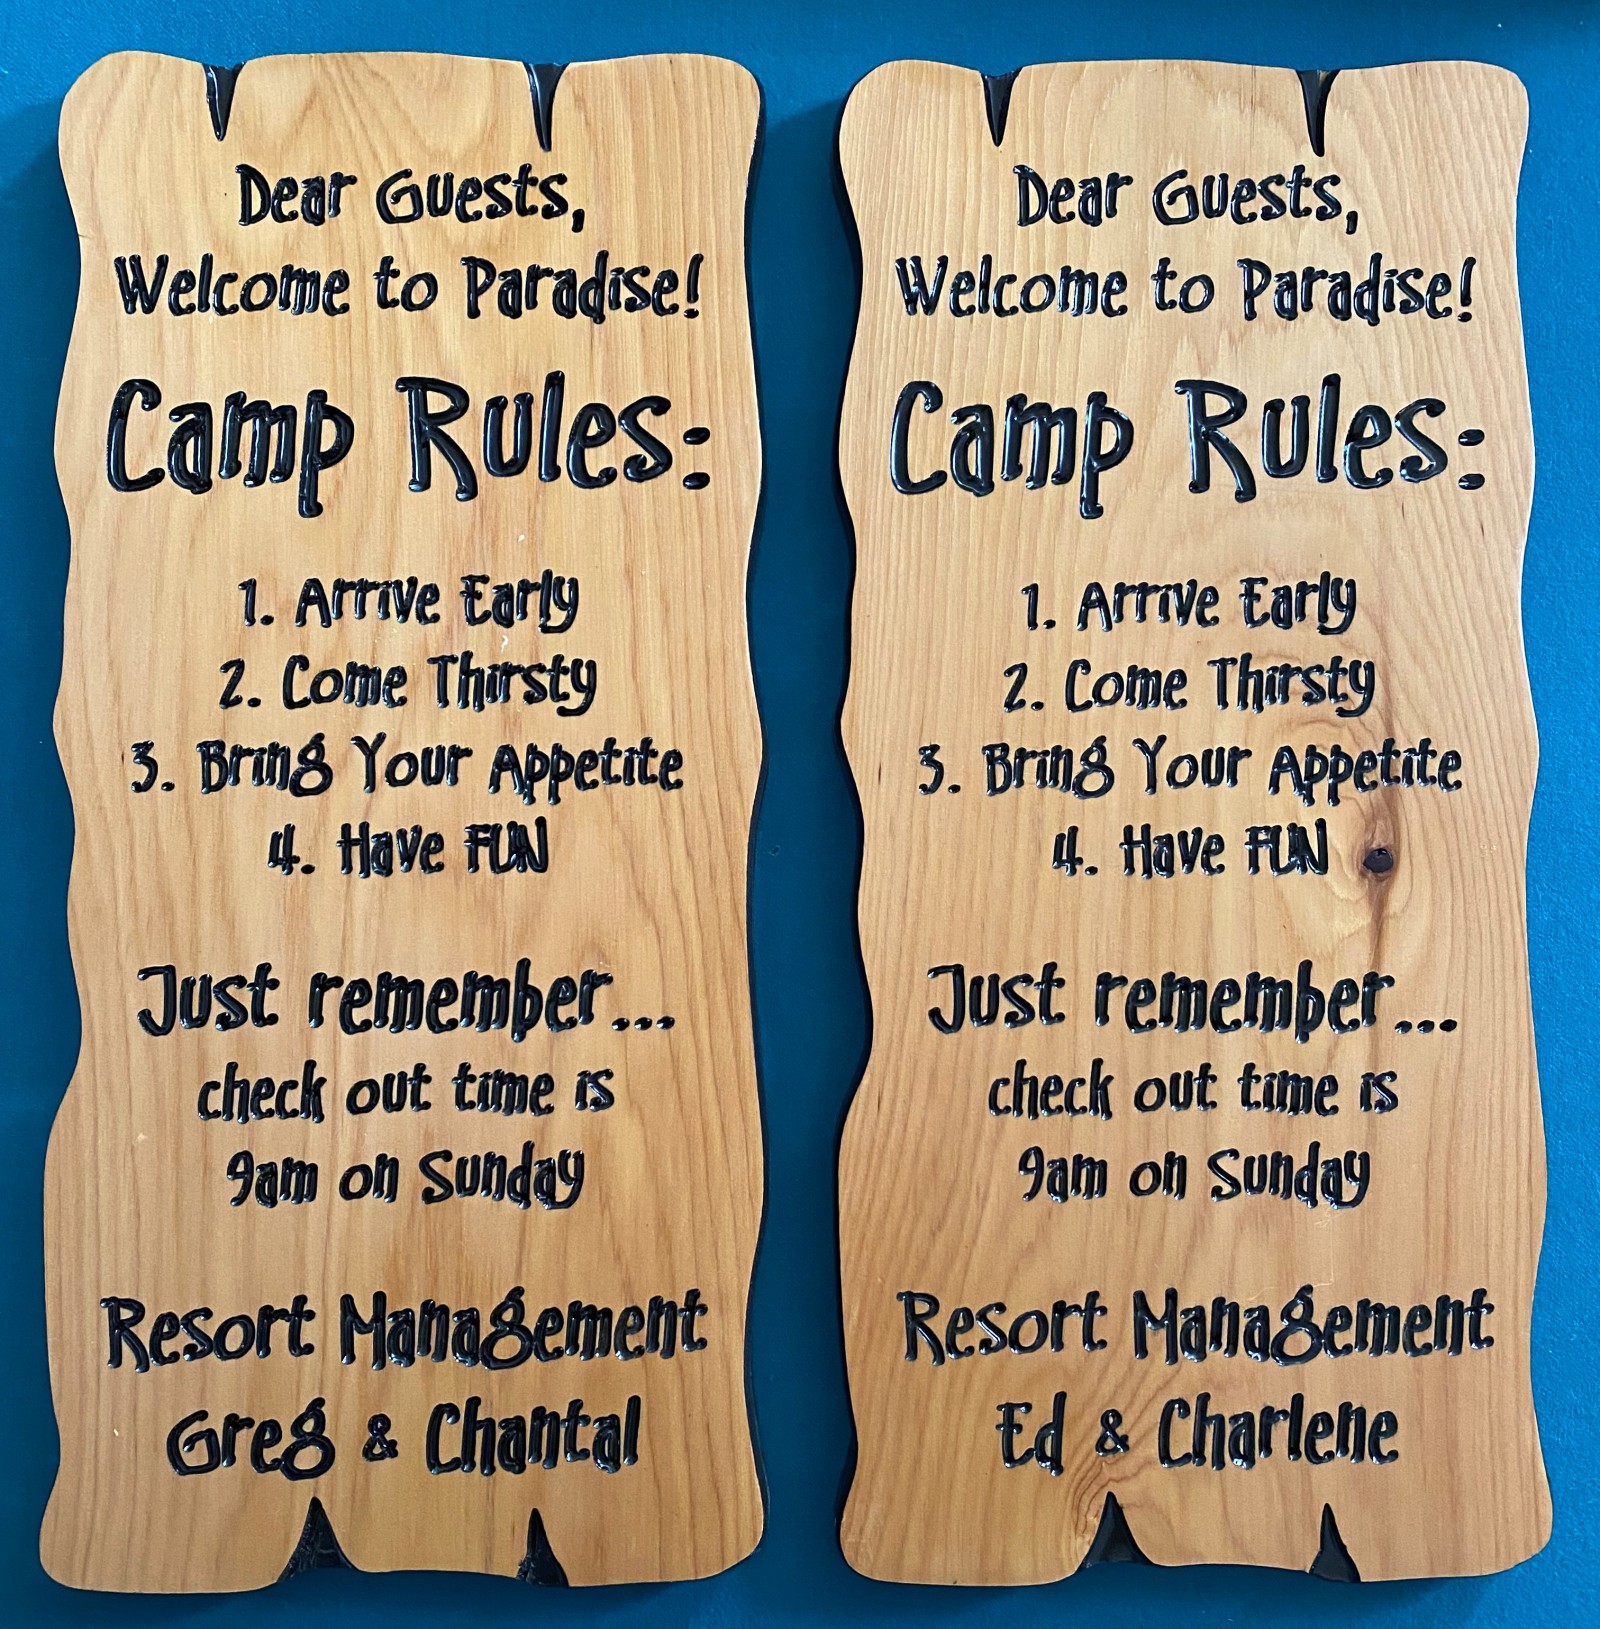 Dear Guests,
Welcome to Paradise!
Camp Rules:
1. Arrive Early
2. Come Thirsty
3. Bring Your Appetite
4. Have FUN
Just remember...
check out time is
9am on Sunday
Resort Management
Greg & Chantal
Dear Guests,
Welcome to Paradise!
Camp Rules:
1. Arrive Early
2. Come Thirsty
3. Bring Your Appetite
4. Have FUN
Just remember...
check out time is
9am on Sunday
Resort Management
Ed & Charlene